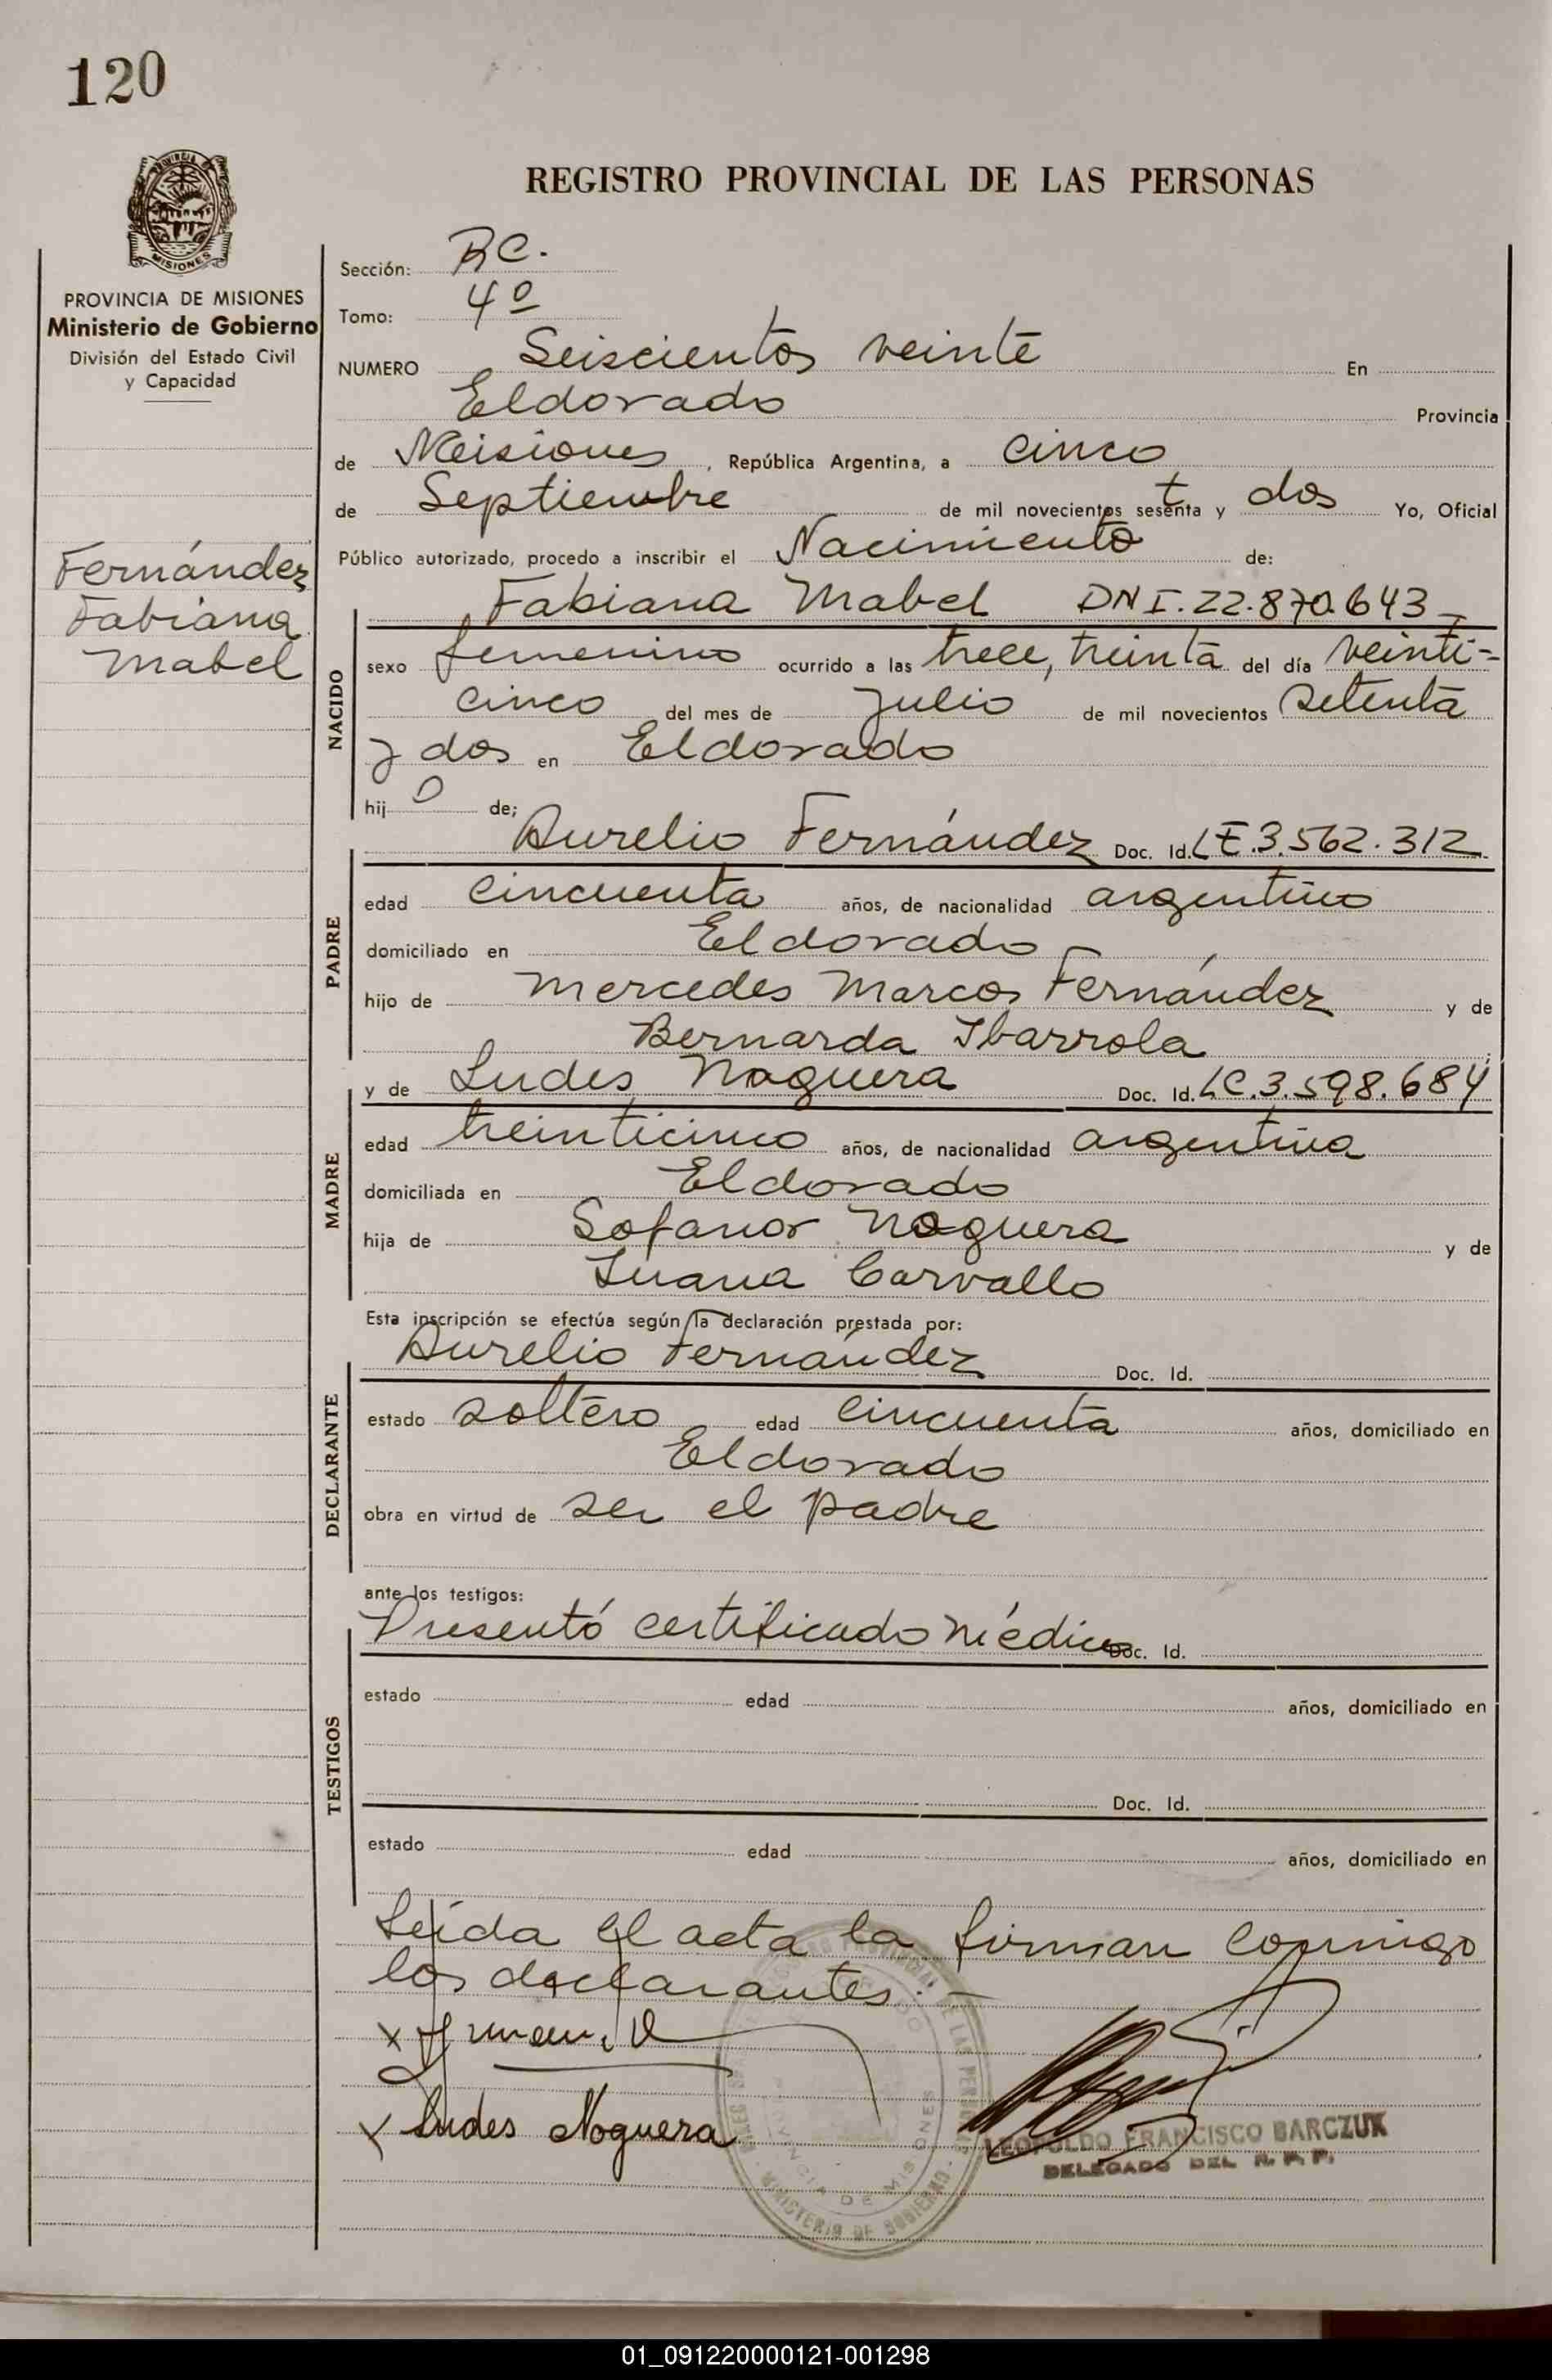 120
PROVINCIA DE MISIONES
Ministerio de Gobierno
División del Estado Civil
y Capacidad
Fernández
Fabiana
Mabel
REGISTRO PROVINCIAL DE LAS PERSONAS
Sección: RC.
Tomo: 4º
NUMERO Seiscientos veinte En
Eldorado Provincia
de Misiones, República Argentina, a cinco
de Septiembre de mil novecientos setenta y dos Yo, Oficial
Público autorizado, procedo a inscribir el Nacimiento de:
Fabiana Mabel DNI. 22.870.643
NACIDO
sexo femenino ocurrido a las trece, treinta del día veinti=
cinco del mes de Julio de mil novecientos setenta
y dos en Eldorado
hij de;
Aurelio Fernández Doc. Id. LE.3.562.312
PADRE
edad cincuenta años, de nacionalidad argentino
domiciliado en Eldorado
hijo de Mercedes Marcos Fernández y de
Bernarda Ibarrola
y de Ludes Noguera Doc. Id. LC.3.598.684
MADRE
edad treinticinco años, de nacionalidad argentina
domiciliada en Eldorado
hija de Sofanor Noguera y de
Juana Carvallo
Esta inscripción se efectúa según la declaración prestada por:
Aurelio Fernández Doc. Id.
DECLARANTE
estado soltero edad cincuenta años, domiciliado en
Eldorado
obra en virtud de ser el padre
ante los testigos:
Presentó certificado médico Doc. Id.
TESTIGOS
estado edad años, domiciliado en
Doc. Id.
estado edad años, domiciliado en
Leída el acta la firman conmigo
los declarantes.-
x
x Ludes Noguera
LEOPOLDO FRANCISCO BARCZUK
DELEGADO DEL R. P. P.
PROVINCIA DE MISIONES
MINISTERIO DE GOBIERNO
01_091220000121-001298